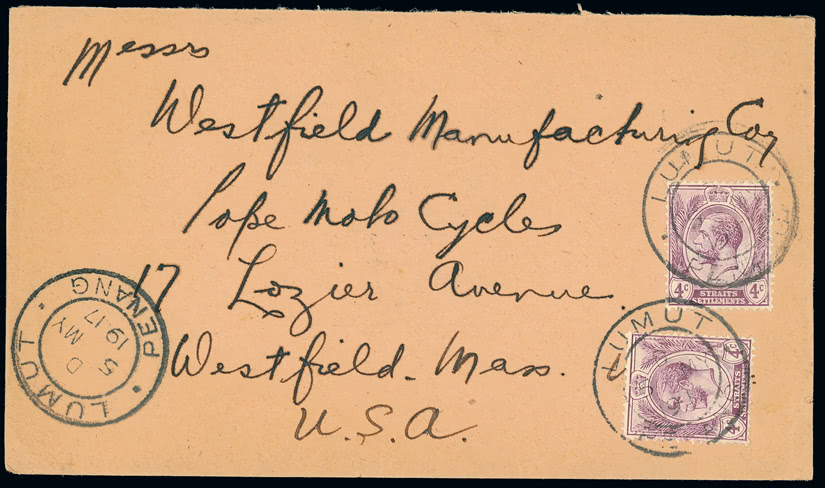 Messrs
Westfield Manufacturing Coy
Pope Moto Cycles
17 Lozier Avenue.
Westfield. Mass.
U.S.A.
LUMUT
STRAITS
SETTLEMENTS
4c 4c
LUMUT
STRAITS
SETTLEMENTS
4c 4c
LUMUT · PENANG
D
5 MY
1917